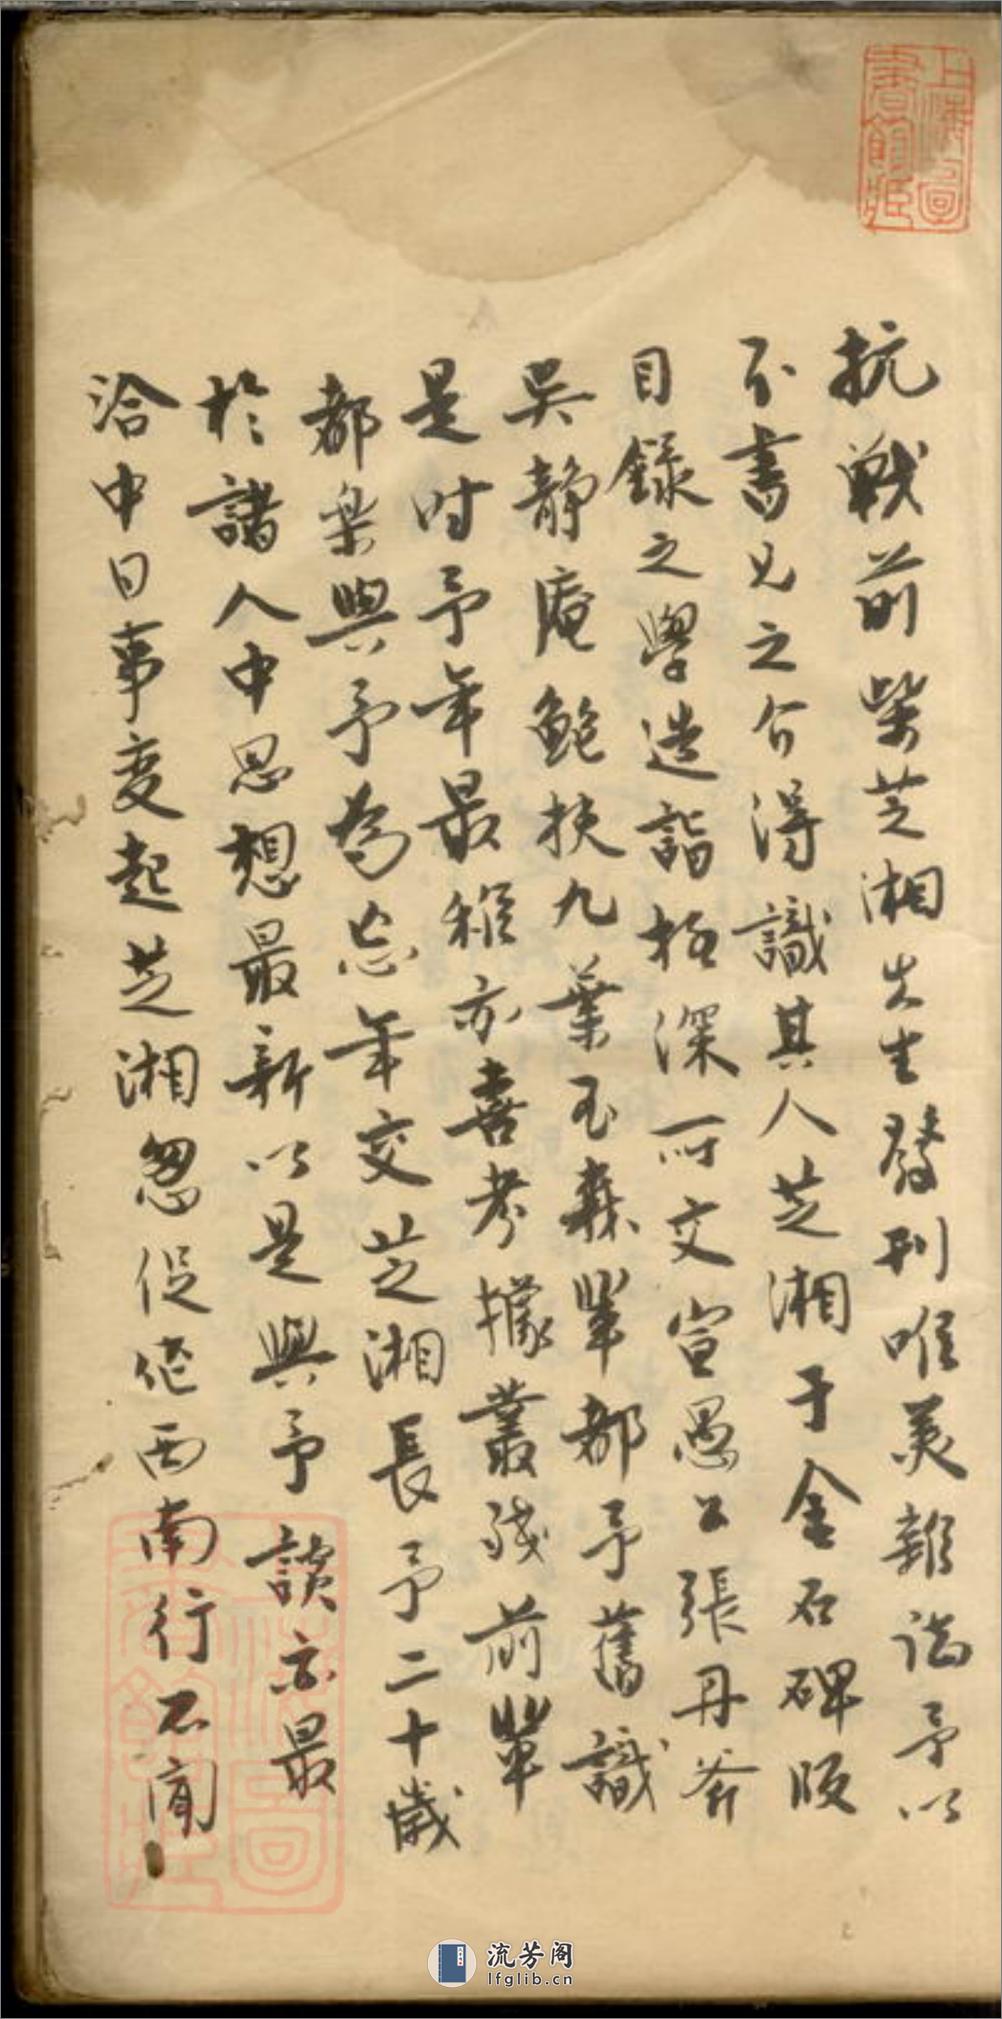 上海圖書館藏
抗戰前柴芝湘先生發刊唯美雜誌予以
不書見之介得識其人芝湘于金石碑版
目錄之學造詣極深所交宣愚公張丹斧
吳靜庵鮑扶九葉玉森輩都予舊識
是時予年最稚亦喜考據叢殘前輩
都樂與予為忘年交芝湘長予二十歲
於諸人中思想最新以是與予談亦最
洽中日事變起芝湘忽促促西南行不聞
上海圖書館藏
流芳阁
lfglib.cn